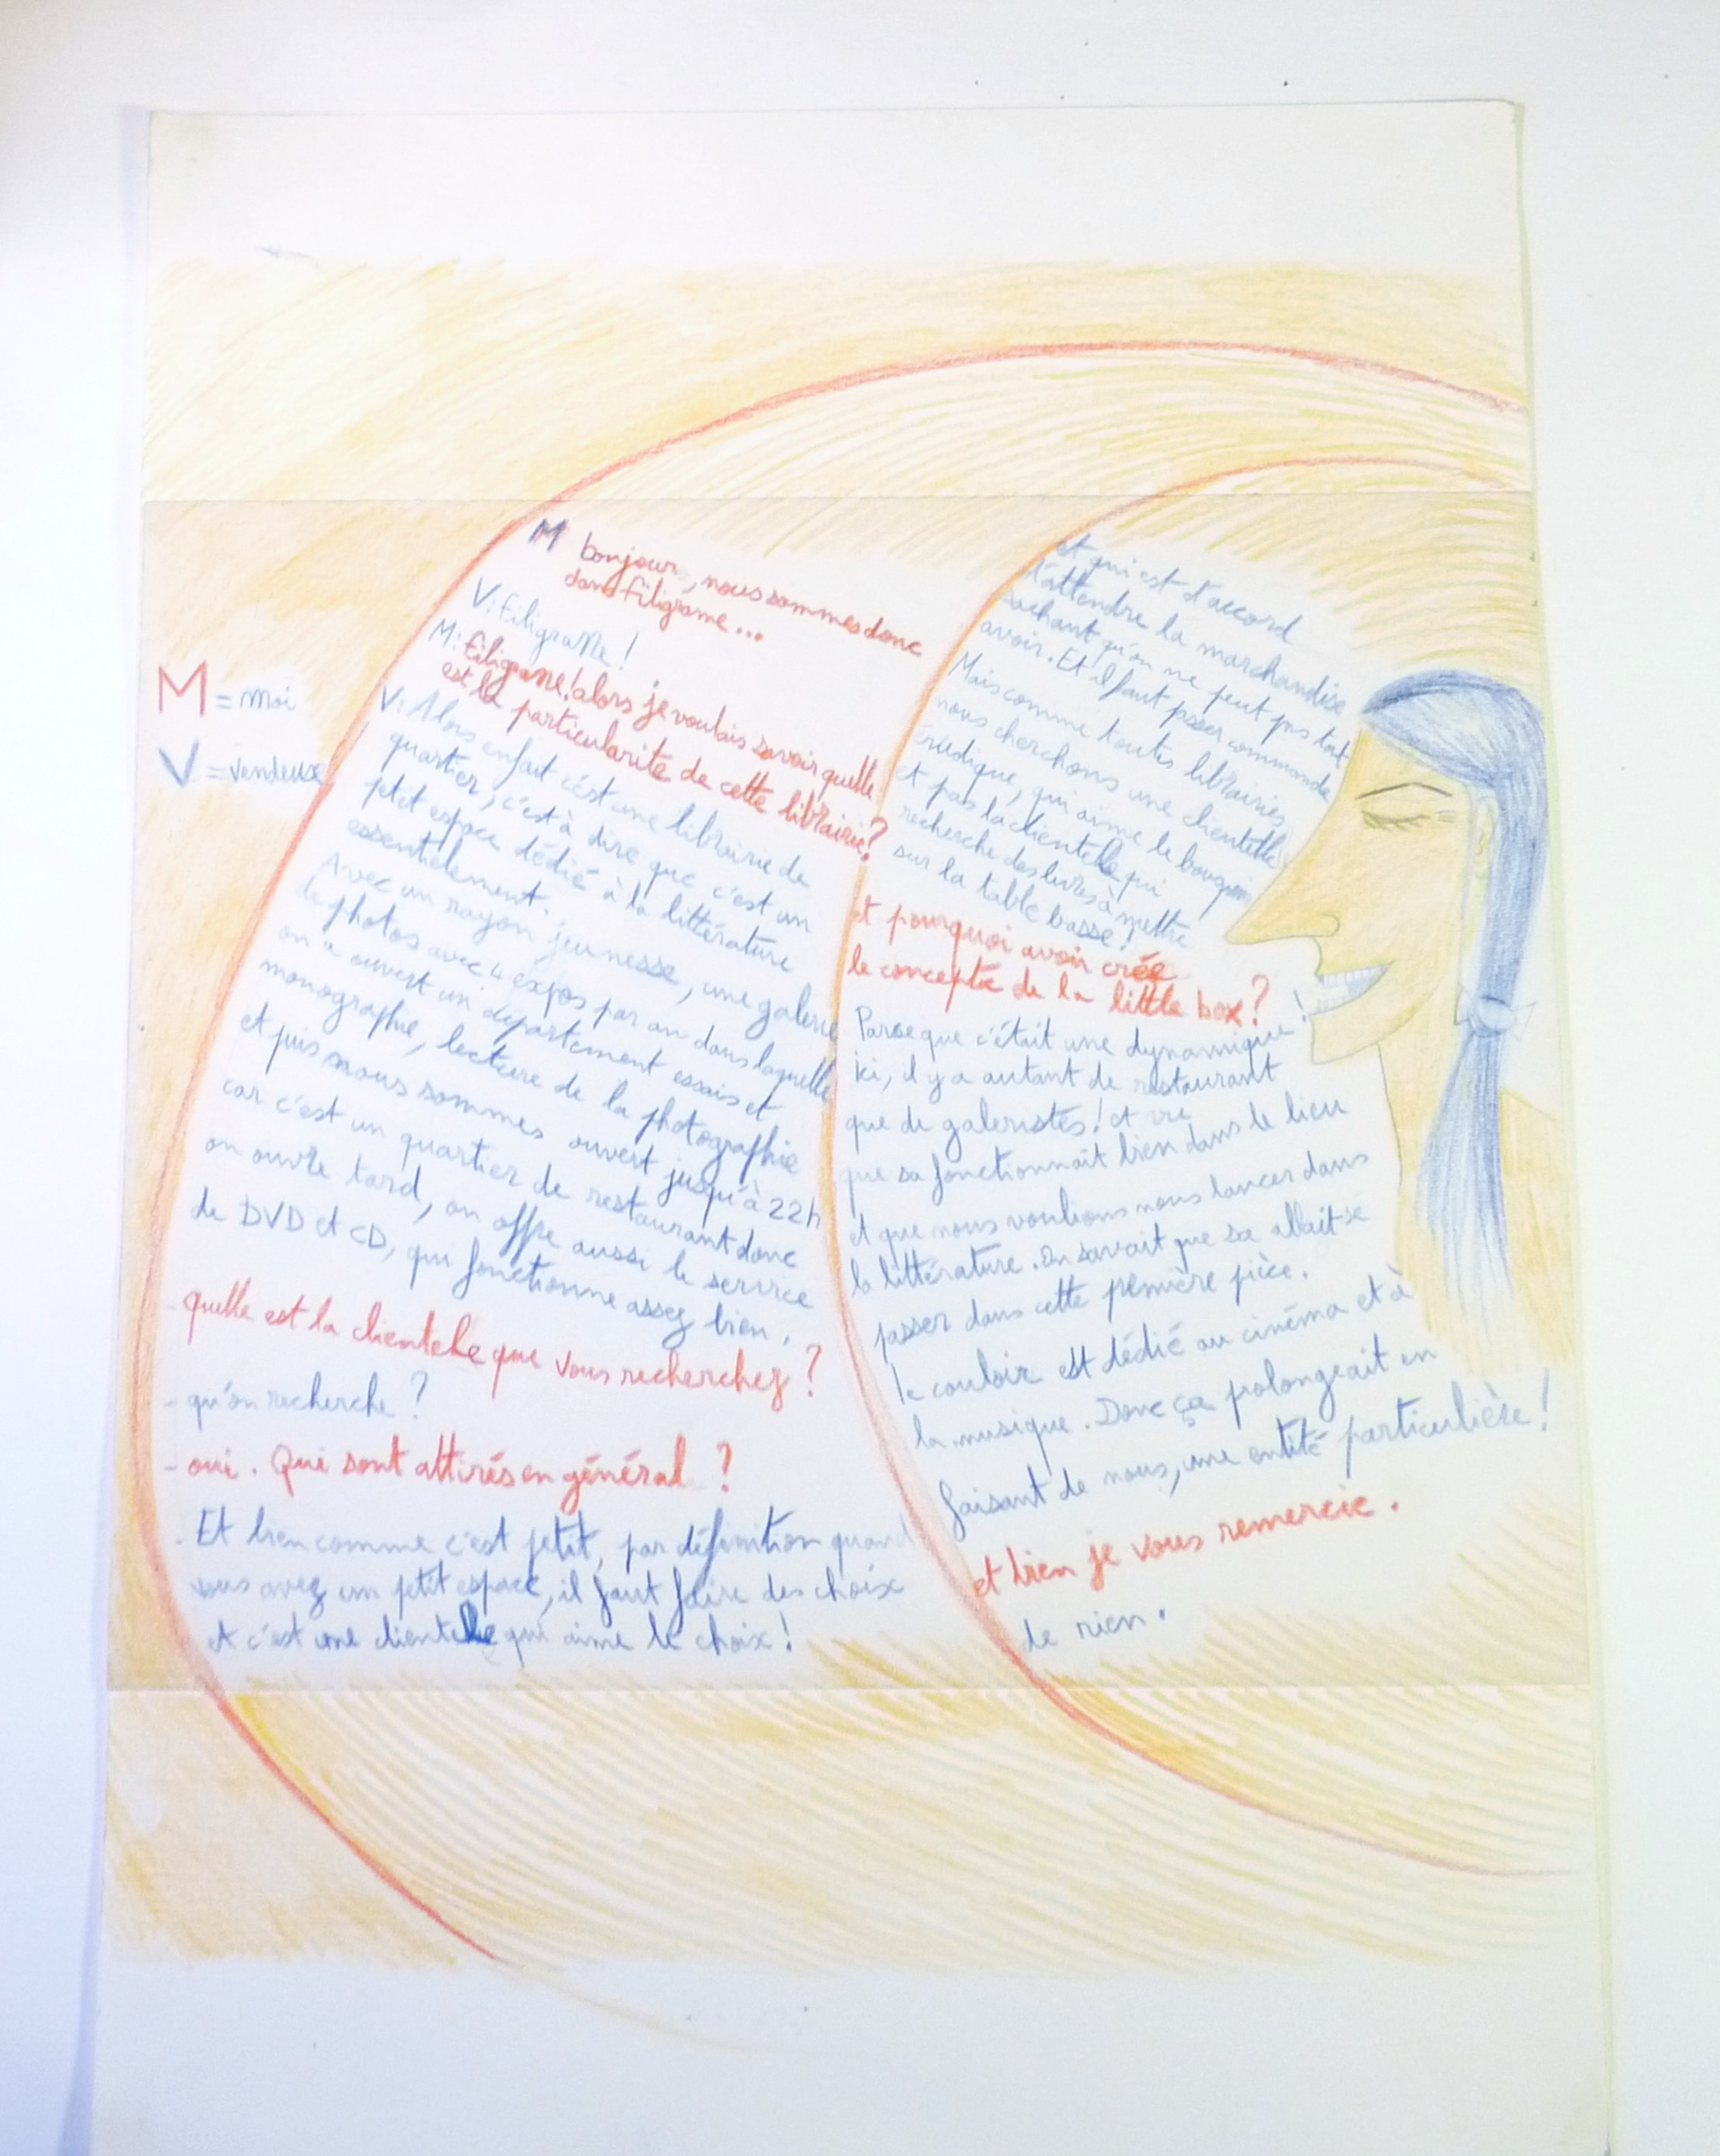 M = moi
V = vendeuse
M bonjour, nous sommes donc
dans filigrame...
V: FiligraNe!
M: FiligraNe! alors je voulais savoir quelle
est la particularité de cette librairie?
V: Alors enfait c'est une librairie de
quartier, c'est à dire que c'est un
petit espace dédié à la littérature
essentielement.
Avec un rayon jeunesse, une galerie
de photos avec 4 expos par an dans laquelle
on a ouvert un département essais et
monographie, lecture de la photographie
et puis nous sommes ouvert jusqu'à 22h
car c'est un quartier de restaurant donc
on ouvre tard, on offre aussi le service
de DVD et CD, qui fonctionne assez bien.
- quelle est la clientele que vous recherchez?
- qu'on recherche?
- oui. Qui sont attirés en général?
- Et bien comme c'est petit, par définition quand
vous avez un petit espace, il faut faire des choix
et c'est une clientelle qui aime le choix!
et qui est d'accord
d'attendre la marchandise
sachant qu'on ne peut pas tout
avoir. Et il faut passer commande
Mais comme toutes librairies
nous cherchons une clientelle
érudique, qui aime le bouquin
et pas la clientele qui
recherche des livres à mettre
sur la table basse!
et pourquoi avoir crée
le concepte de la little box?
Parceque c'était une dynamique!
ici, il y a autant de restaurant
que de galeristes! et vu
que sa fonctionnait bien dans le lieu
et que nous voulions nous lancer dans
la littérature. On savait que sa allait se
passer dans cette première pièce.
le couloir est dédié au cinéma et à
la musique. Donc ça prolongeait en
faisant de nous, une entité particulière!
et bien je vous remercie.
de rien.